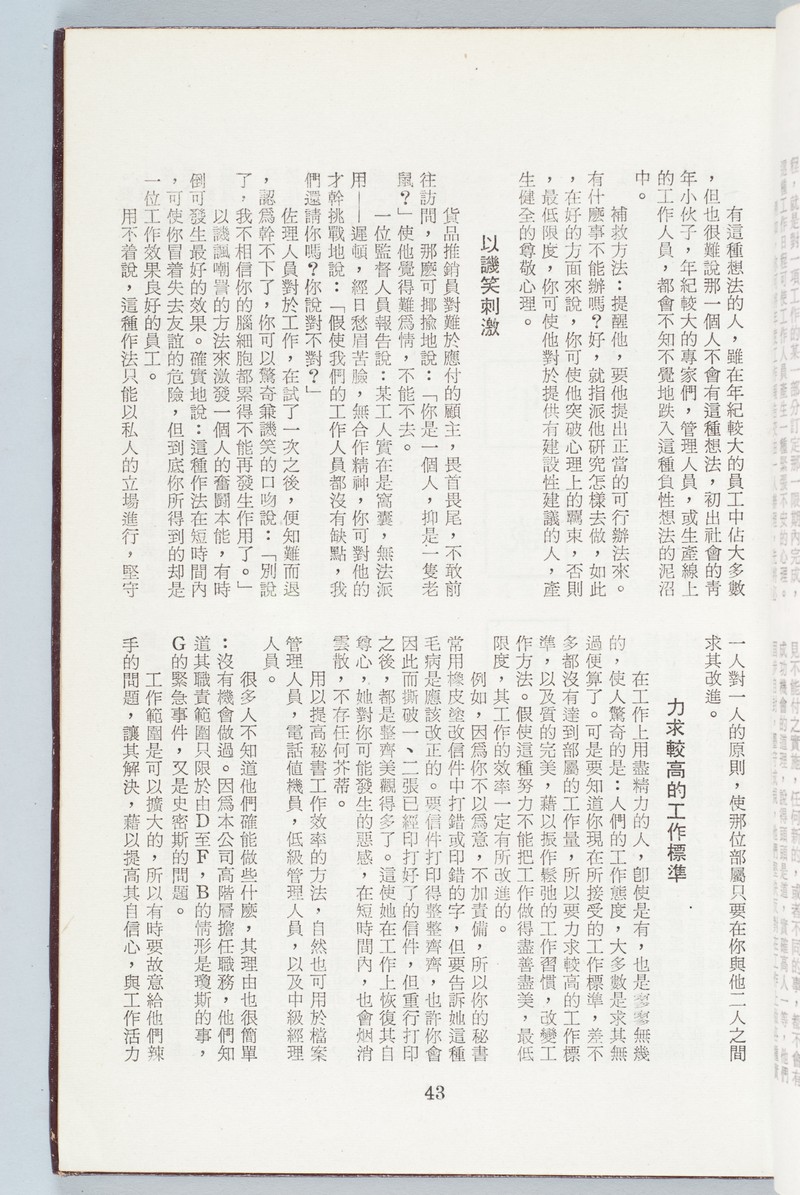 有這種想法的人，雖在年紀較大的員工中佔大多數
，但也很難說那一個人不會有這種想法，初出社會的靑
年小伙子，年紀較大的專家們，管理人員，或生產線上
的工作人員，都會不知不覺地跌入這種負性想法的泥沼
中。
補救方法：提醒他，要他提出正當的可行辦法來。
有什麼事不能辦嗎？好，就指派他研究怎樣去做，如此
，在好的方面來說，你可使他突破心理上的羈束，否則
，最低限度，你可使他對於提供有建設性建議的人，產
生健全的尊敬心理。
以譏笑刺激
貨品推銷員對難於應付的顧主，畏首畏尾，不敢前
往訪問，那麼可揶揄地說：「你是一個人，抑是一隻老
鼠？」使他覺得難爲情，不能不去。
一位監督人員報告說：某工人實在是窩囊，無法派
用——遲頓，經日愁眉苦臉，無合作精神，你可對他的
才幹挑戰地說：「假使我們的工作人員都沒有缺點，我
們還請你嗎？你說對不對？」
佐理人員對於工作，在試了一次之後，便知難而退
，認爲幹不下了，你可以驚奇兼譏笑的口吻說：「別說
了，我不相信你的腦細胞都累得不能再發生作用了。」
以譏諷嘲詈的方法來激發一個人的奮鬪本能，有時
倒可發生最好的效果。確實地說：這種作法在短時間內
，可使你冒着失去友誼的危險，但到底你所得到的却是
一位工作效果良好的員工。
用不着說，這種作法只能以私人的立場進行，堅守
一人對一人的原則，使那位部屬只要在你與他二人之間
求其改進。
力求較高的工作標準
在工作上用盡精力的人，卽使是有，也是寥寥無幾
的，使人驚奇的是：人們的工作態度，大多數是求其無
過便算了。可是要知道你現在所接受的工作標準，差不
多都沒有達到部屬的工作量，所以要力求較高的工作標
準，以及質的完美，藉以振作鬆弛的工作習慣，改變工
作方法。假使這種努力不能把工作做得盡善盡美，最低
限度，其工作的效率一定有所改進的。
例如，因爲你不以爲意，不加責備，所以你的秘書
常用橡皮塗改信件中打錯或印錯的字，但要告訴她這種
毛病是應該改正的。要信件打印得整整齊齊，也許你會
因此而撕破一、二張已經印打好了的信件，但重行打印
之後，都是整齊美觀得多了。這使她在工作上恢復其自
尊心，她對你可能發生的惡感，在短時間內，也會烟消
雲散，不存任何芥蒂。
用以提高秘書工作效率的方法，自然也可用於檔案
管理人員，電話値機員，低級管理人員，以及中級經理
人員。
很多人不知道他們確能做些什麼，其理由也很簡單
：沒有機會做過。因爲本公司高階層擔任職務，他們知
道其職責範圍只限於由D至F，B的情形是瓊斯的事，
G的緊急事件，又是史密斯的問題。
工作範圍是可以擴大的，所以有時要故意給他們辣
手的問題，讓其解決，藉以提高其自信心，與工作活力
43